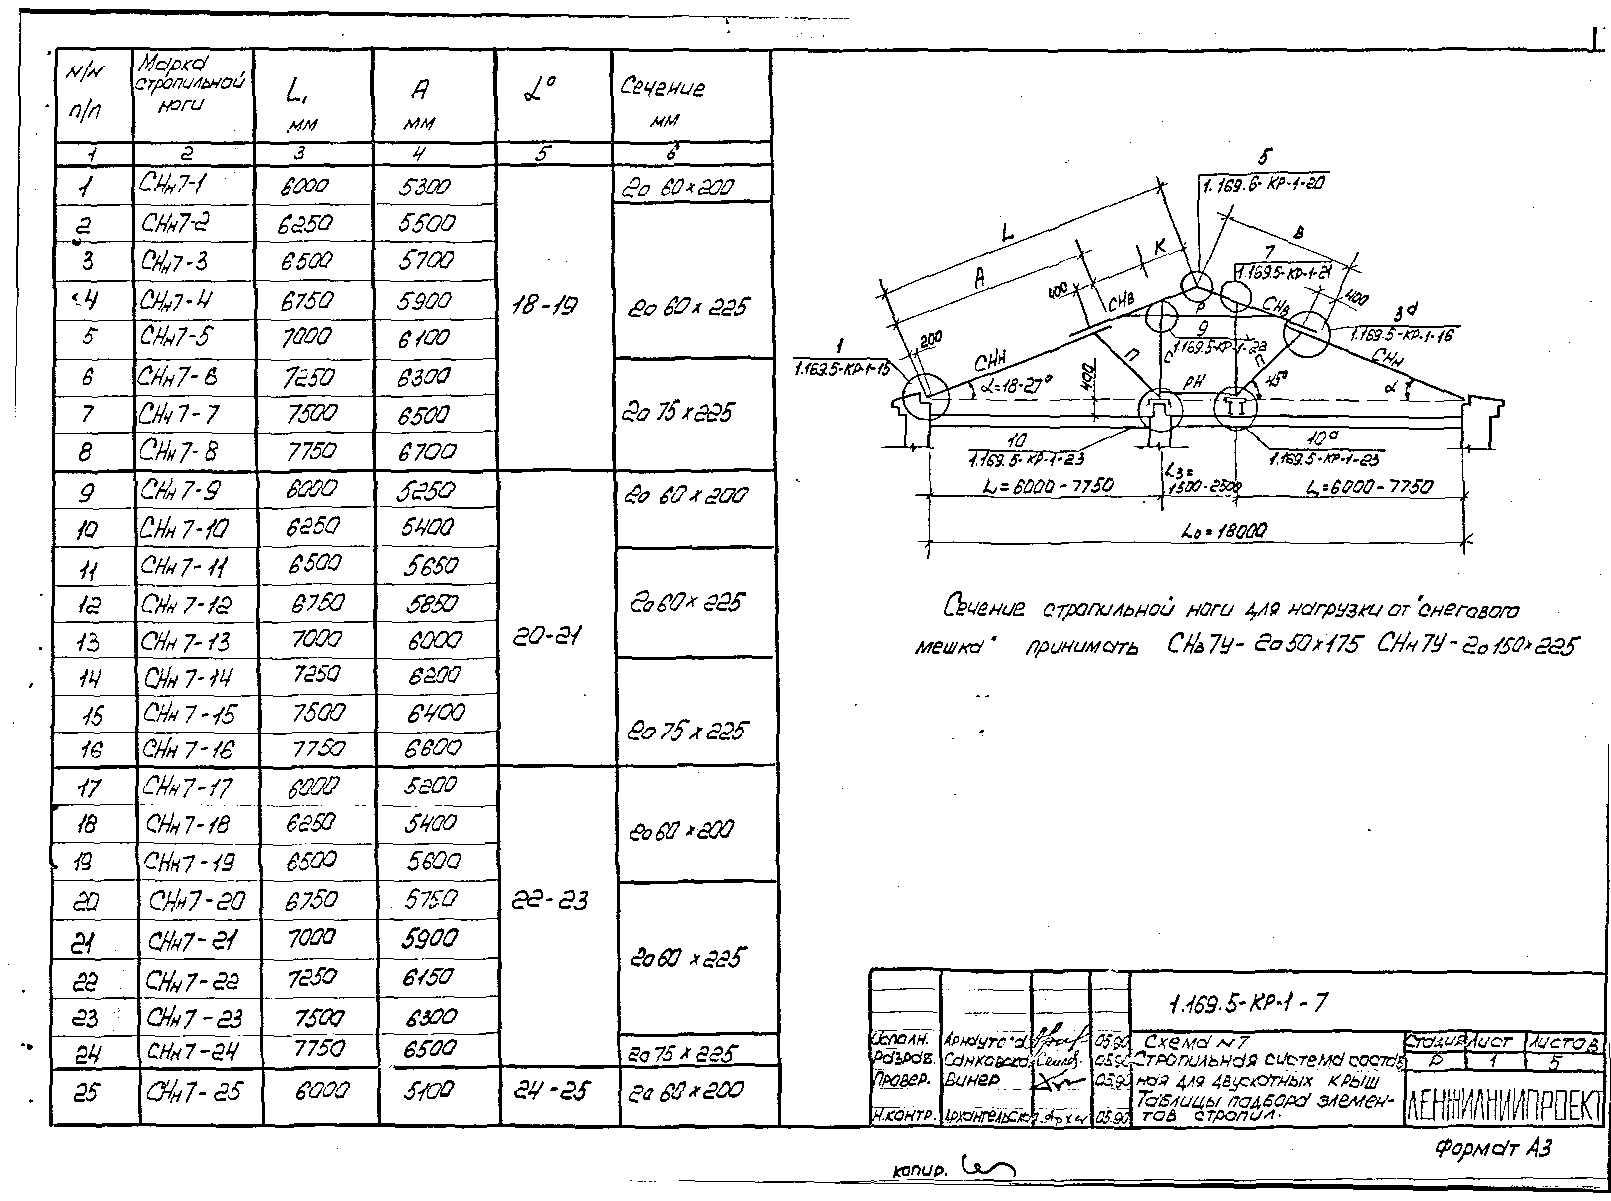 N/N п/п
Марка стропильной ноги
L, мм
А мм
α°
Сечение мм
1 2 3 4 5 6
1 СНн7-1 6000 5300 18-19 2о 60×200
2 СНн7-2 6250 5500
3 СНн7-3 6500 5700
4 СНн7-4 6750 5900 2о 60×225
5 СНн7-5 7000 6100
6 СНн7-6 7250 6300
7 СНн7-7 7500 6500 2о 75×225
8 СНн7-8 7750 6700
9 СНн7-9 6000 5250 20-21 2о 60×200
10 СНн7-10 6250 5400
11 СНн7-11 6500 5650
12 СНн7-12 6750 5850 2о 60×225
13 СНн7-13 7000 6000
14 СНн7-14 7250 6200
15 СНн7-15 7500 6400 2о 75×225
16 СНн7-16 7750 6600
17 СНн7-17 6000 5200 22-23
18 СНн7-18 6250 5400 2о 60×200
19 СНн7-19 6500 5600
20 СНн7-20 6750 5750
21 СНн7-21 7000 5900 2о 60×225
22 СНн7-22 7250 6150
23 СНн7-23 7500 6300
24 СНн7-24 7750 6500 2о 75×225
25 СНн7-25 6000 5100 24-25 2о 60×200
5
1.169.6-КР-1-20
L
К
В
А
7
1.169.5-КР-1-21
400
СНв
Р
СНв
400
3а
1.169.5-КР-1-16
1
1.169.5-КР-1-15
200
СНн
9
1.169.5-КР-1-22
П
С
П
СНн
α=18-27°
400
РН
45°
α
10
1.169.5-КР-1-23
10а
1.169.5-КР-1-23
L₁=6000-7750
L₃=
1500-2500
L₁=6000-7750
L₀=18000
Сечение стропильной ноги для нагрузки от "снегового
мешка" принимать СНв7У-2о50×175 СНн7У-2о150×225
1.169.5-КР-1-7
Исполн. 05.90
Разраб. 05.90
Провер. Винер 05.90
Н.контр. 05.90
Схема N7
Стропильная система состав
ная для двускатных крыш
Таблицы подбора элемен-
тов стропил.
Стадия Лист Листов
Р 1 5
ЛЕНЖИЛНИИПРОЕКТ
Формат А3
копир.